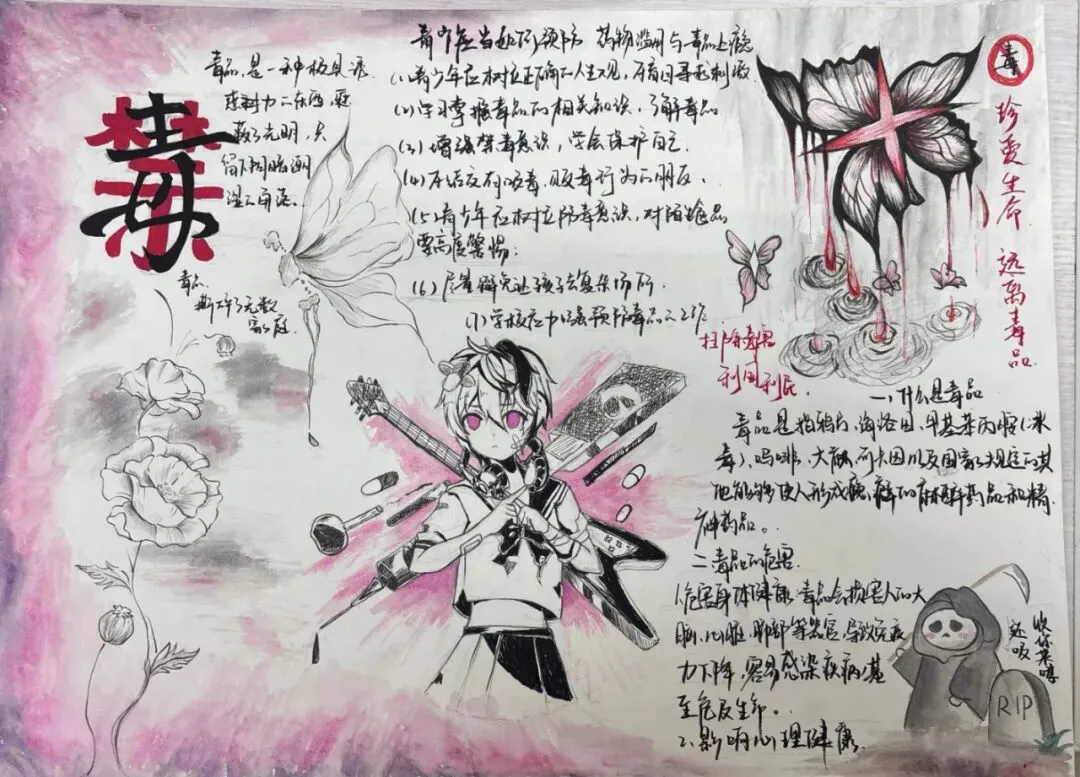 禁毒
毒品,是一种极具诱
惑力的东西,它
藏了光明,只
留下阴暗潮
湿的角落。
毒品
撕碎了无数
家庭
青少年应当如何预防 药物滥用与毒品上瘾
(1)青少年应树立正确的人生观,不盲目寻求刺激
(2)学习掌握毒品的相关知识,了解毒品
(3)增强禁毒意识,学会保护自己.
(4)不结交有吸毒、贩毒行为的朋友.
(5)青少年应树立防毒意识,对陌生食品
要高度警惕;
(6)尽量避免让孩子去复杂场所.
(7)学校应加强预防毒品的工作
毒
珍爱生命 远离毒品
扫除毒害
利国利民.
一、什么是毒品
毒品是指鸦片、海洛因、甲基苯丙胺(冰
毒)、吗啡、大麻、可卡因以及国家规定的其
他能够使人形成瘾癖的麻醉药品和精
神药品。
二、毒品的危害
1.危害身体健康 毒品会损害人的大
脑、心脏、肺部等器官,导致免疫
力下降,容易感染疾病,甚
至危及生命。
2.影响心理健康
收你来喽
还吸
RIP